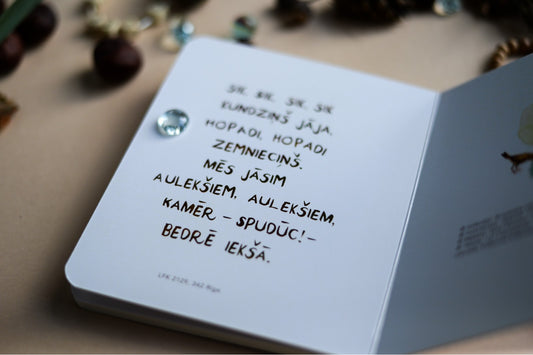 SIK, SIK, SIK, SIK
KUNDZIŅŠ JĀJA,
HOPADI, HOPADI
ZEMNIECIŅŠ.
MĒS JĀSIM
AULEKŠIEM, AULEKŠIEM,
KAMĒR – SPUDŪC! –
BEDRĒ IEKŠĀ.
LFK 2125, 242 Rīga